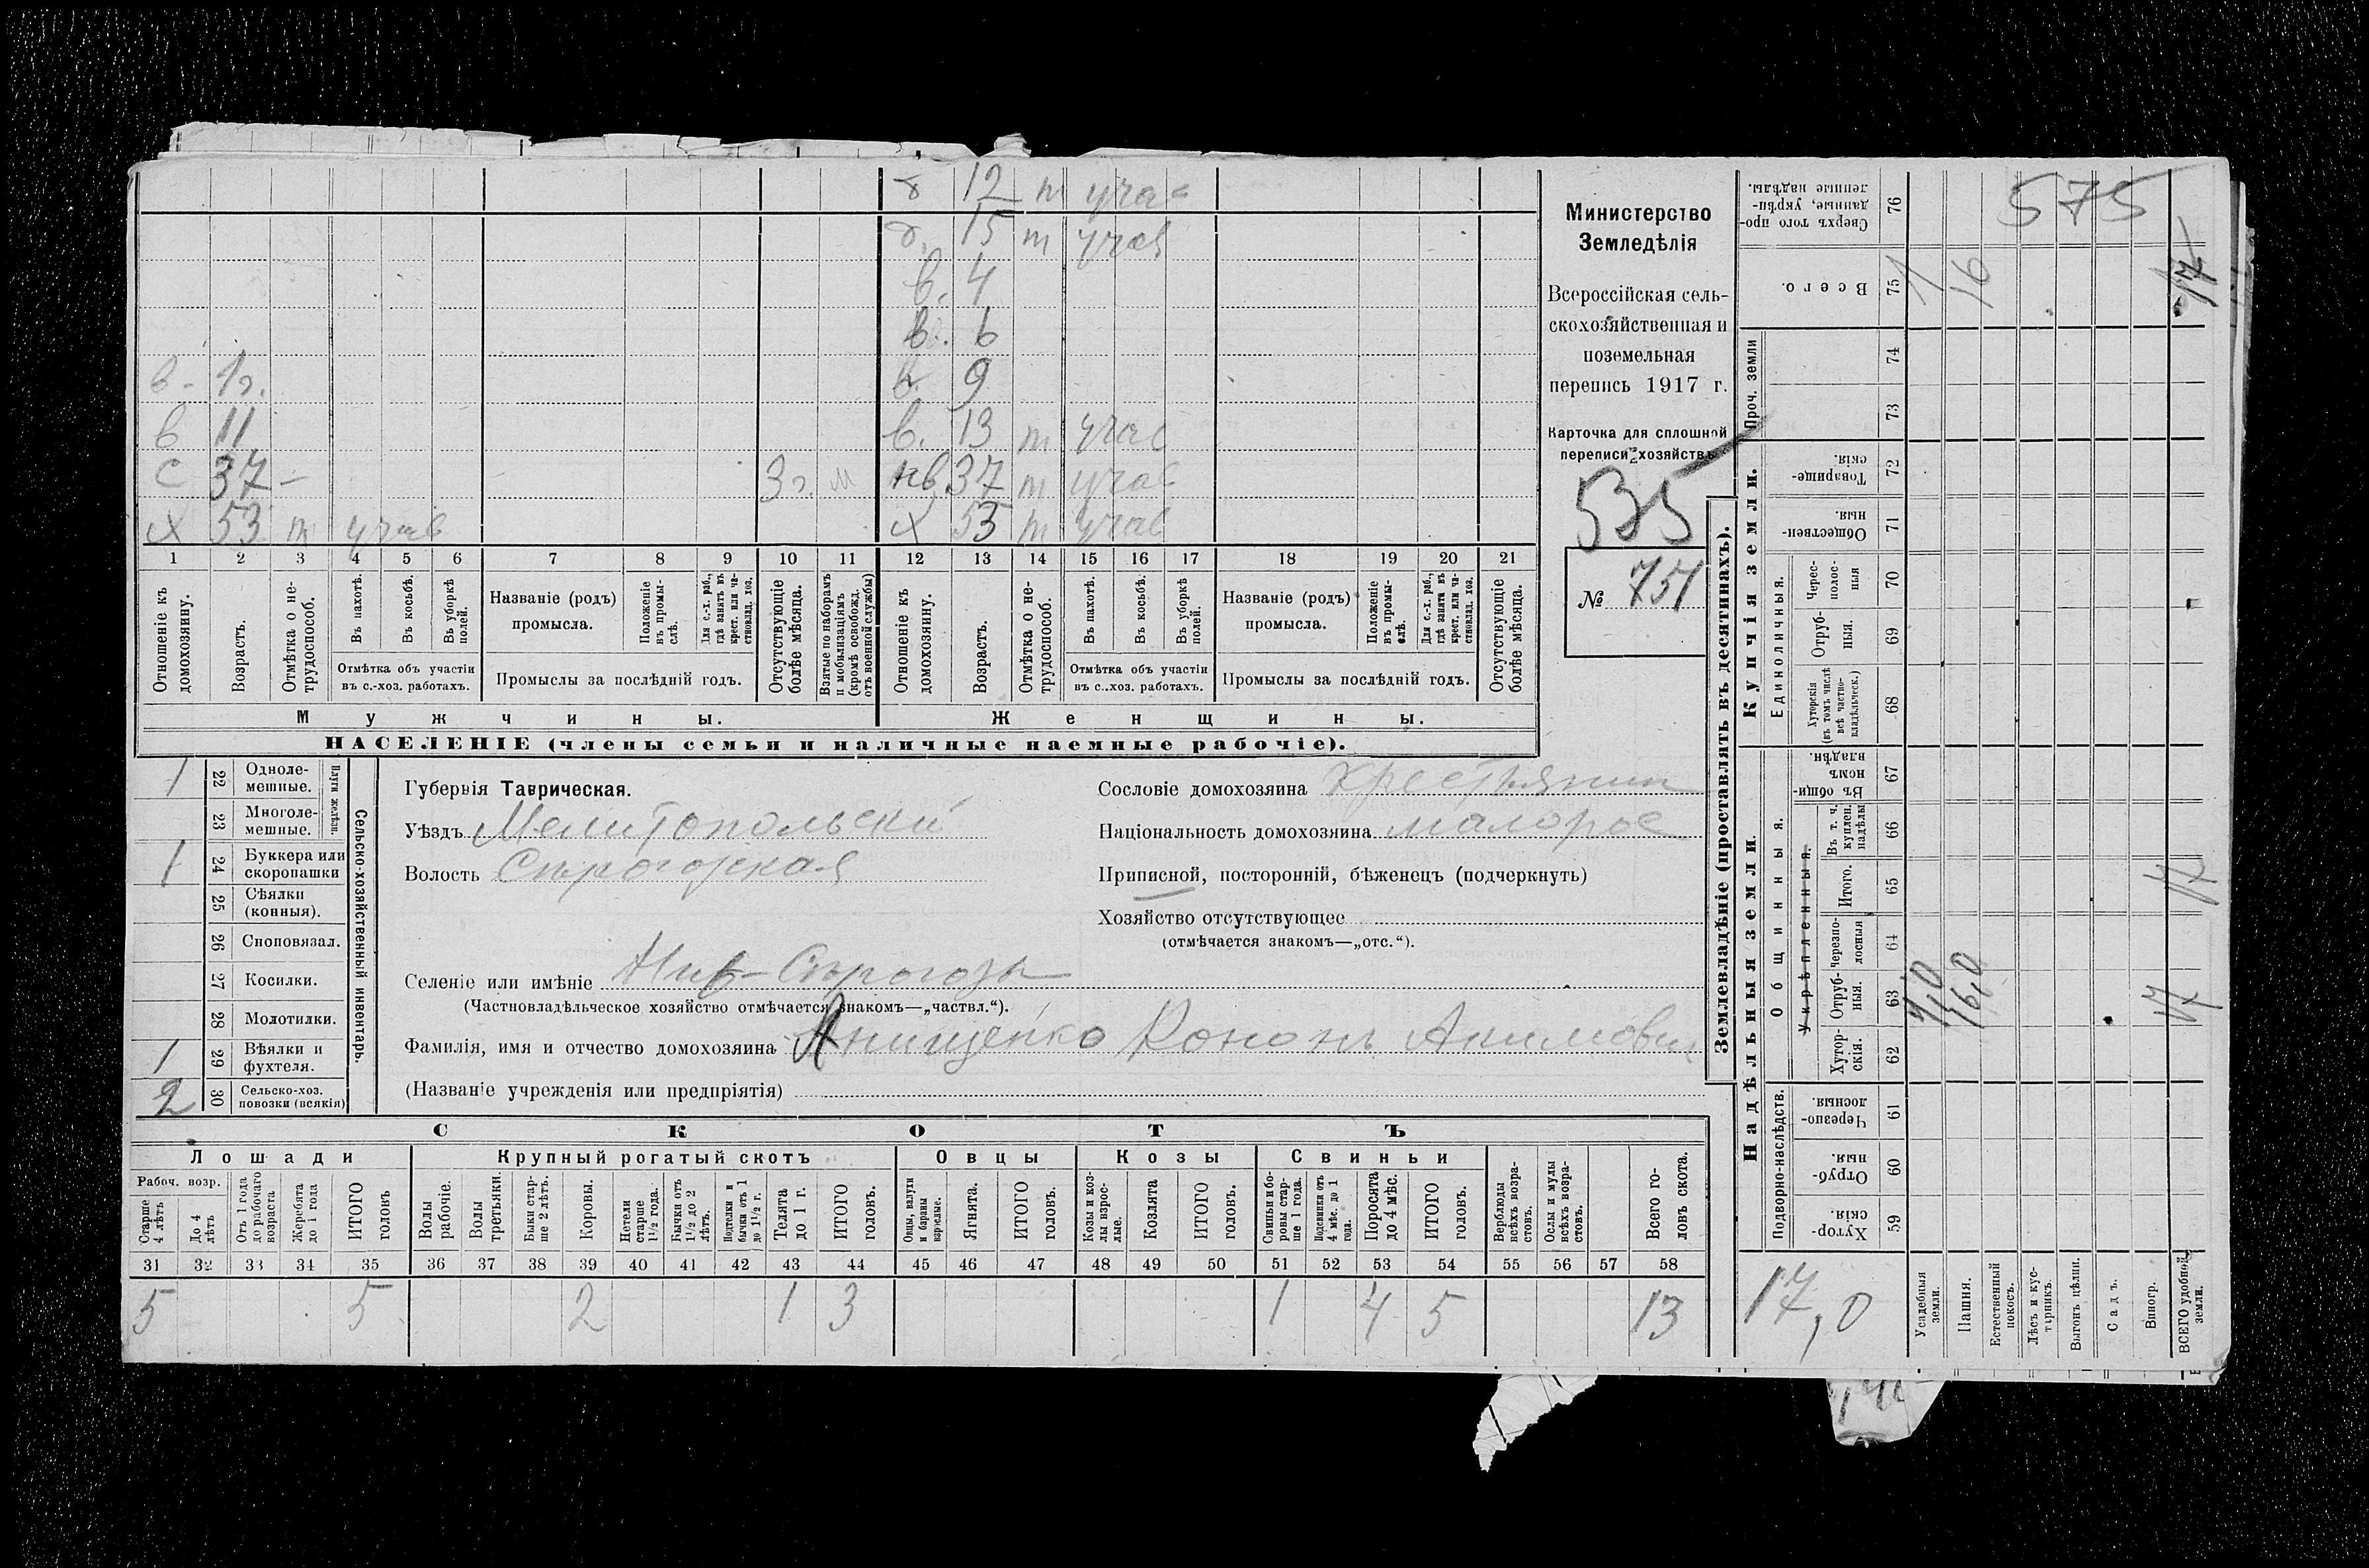 д 12 т учас
д. 15 т учас
в. 4
в. 6
в. 1 г. в. 9
в 11 в. 13 т учас
с 37 – 3 г. м нв 37 т учас
х 53 т учас х 53 т учас
1 2 3 4 5 6 7 8 9 10 11 12 13 14 15 16 17 18 19 20 21
Отношеніе къ домохозяину.
Возрастъ.
Отмѣтка о не-трудоспособ.
Въ пахотѣ.
Въ косьбѣ.
Въ уборкѣ полей.
Отмѣтка объ участіи
въ с.-хоз. работахъ.
Названіе (родъ)
промысла.
Положеніе въ промы-слѣ.
Для с.-х. раб., гдѣ занятъ въ крест. или ча-стновлад. хоз.
Промыслы за послѣдній годъ.
Отсутствующіе болѣе мѣсяца.
Взятые по наборамъ и мобилизаціямъ (кромѣ освобожд. отъ военной службы)
Отношеніе къ домохозяину.
Возрастъ.
Отмѣтка о не-трудоспособ.
Въ пахотѣ.
Въ косьбѣ.
Въ уборкѣ полей.
Отмѣтка объ участіи
въ с..хоз. работахъ.
Названіе (родъ)
промысла.
Положеніе въ промы-слѣ.
Для с.-х. раб., гдѣ занята въ крест. или ча-стновлад. хоз.
Промыслы за послѣдній годъ.
Отсутствующіе болѣе мѣсяца.
Мужчины. Женщины.
НАСЕЛЕНІЕ (члены семьи и наличные наемные рабочіе).
Министерство
Земледѣлія
Всероссійская сель-
скохозяйственная и
поземельная
перепись 1917 г.
Карточка для сплошной
переписи хозяйствъ
535
№ 757
Сельско-хозяйственный инвентарь.
Плуги желѣзн.
1 22 Одноле-мешные.
23 Многоле-мешные.
1 24 Буккера или скоропашки
25 Сѣялки (конныя).
26 Сноповязал.
27 Косилки.
28 Молотилки.
1 29 Вѣялки и фухтеля.
2 30 Сельско-хоз. повозки (всякія)
Губернія Таврическая.
Уѣздъ Мелитопольскій
Волость Сѣрогозская
Селеніе или имѣніе Ниж-Сѣрогозы
(Частновладѣльческое хозяйство отмѣчается знакомъ—„частвл.“).
Фамилія, имя и отчество домохозяина Анищенко Кононъ Акимович
(Названіе учрежденія или предпріятія)
Сословіе домохозяина крестьянин
Національность домохозяина малорос
Приписной, посторонній, бѣженецъ (подчеркнуть)
Хозяйство отсутствующее
(отмѣчается знакомъ—„отс.“).
СКОТЪ
Лошади Крупный рогатый скотъ Овцы Козы Свиньи
Рабоч. возр.
Старше 4 лѣтъ
До 4 лѣтъ
Отъ 1 года до рабочаго возраста
Жеребята до 1 года
ИТОГО головъ
Волы рабочіе.
Волы третьяки.
Быки стар-ше 2 лѣтъ.
Коровы.
Нетели старше 1½ года.
Бычки отъ 1½ до 2 лѣтъ.
Подтелки и бычки отъ 1 до 1½ г.
Телята до 1 г.
ИТОГО головъ.
Овцы, валухи и бараны взрослые.
Ягнята.
ИТОГО головъ.
Козы и коз-лы взрос-лые.
Козлята
ИТОГО головъ.
Свиньи и бо-ровы стар-ше 1 года.
Подсвинки отъ 4 мѣс. до 1 года.
Поросята до 4 мѣс.
ИТОГО головъ.
Верблюды всѣхъ возра-стовъ.
Ослы и мулы всѣхъ возра-стовъ.
Всего го-ловъ скота.
31 32 33 34 35 36 37 38 39 40 41 42 43 44 45 46 47 48 49 50 51 52 53 54 55 56 57 58
5 5 2 1 3 1 4 5 13
Землевладѣніе (проставлять въ десятинахъ).
Купчія земли.
Надѣльныя земли.
575
76 Сверхъ того про-данные, укрѣп-ленные надѣлы.
75 Всего. 1 16 17
Проч. земли
74
73
72 Товарище-скія.
71 Обществен-ныя.
Единоличныя.
70 Черес-полос-ныя
69 Отруб-ныя.
68 Хуторскія (въ томъ числѣ всѣ частно-владѣльческ.)
Общинныя.
67 Въ общи-номъ владѣн.
Укрѣпленныя.
66 Въ т. ч. куплен. надѣлы
65 Итого. 17
64 Черезпо-лосныя
63 Отруб-ныя. 1,0 16,0 17
62 Хутор-скія.
Подворно-наслѣдств.
61 Черезпо-лосныя.
60 Отруб-ныя.
59 Хутор-скія.
17,0
Усадебныя земли.
Пашня.
Естественный покосъ.
Лѣсъ и кус-тарникъ.
Выгонъ цѣлин.
Садъ.
Виногр.
ВСЕГО удобной земли.